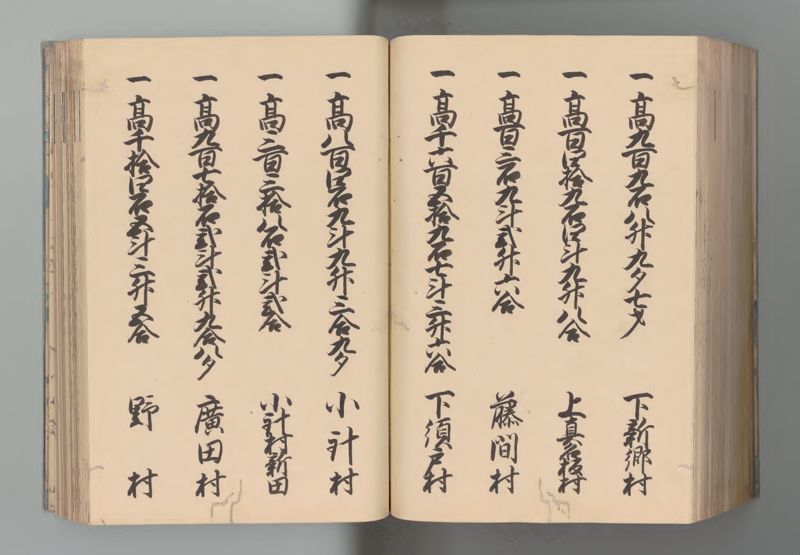 一 高九百九石八升九夕七才 下新郷村
一 高百四拾九石四斗九升八合 上真名板村
一 高百三石九斗弐升六合 藤間村
一 高千六百五拾九石七斗三升六合 下須戸村
一 高八百四石九斗九升三合九夕 小針村
一 高三百三拾八石弐斗弐合 小針村新田
一 高九百七拾石弐斗弐升九合八夕 廣田村
一 高千拾四石五斗三升五合 野村